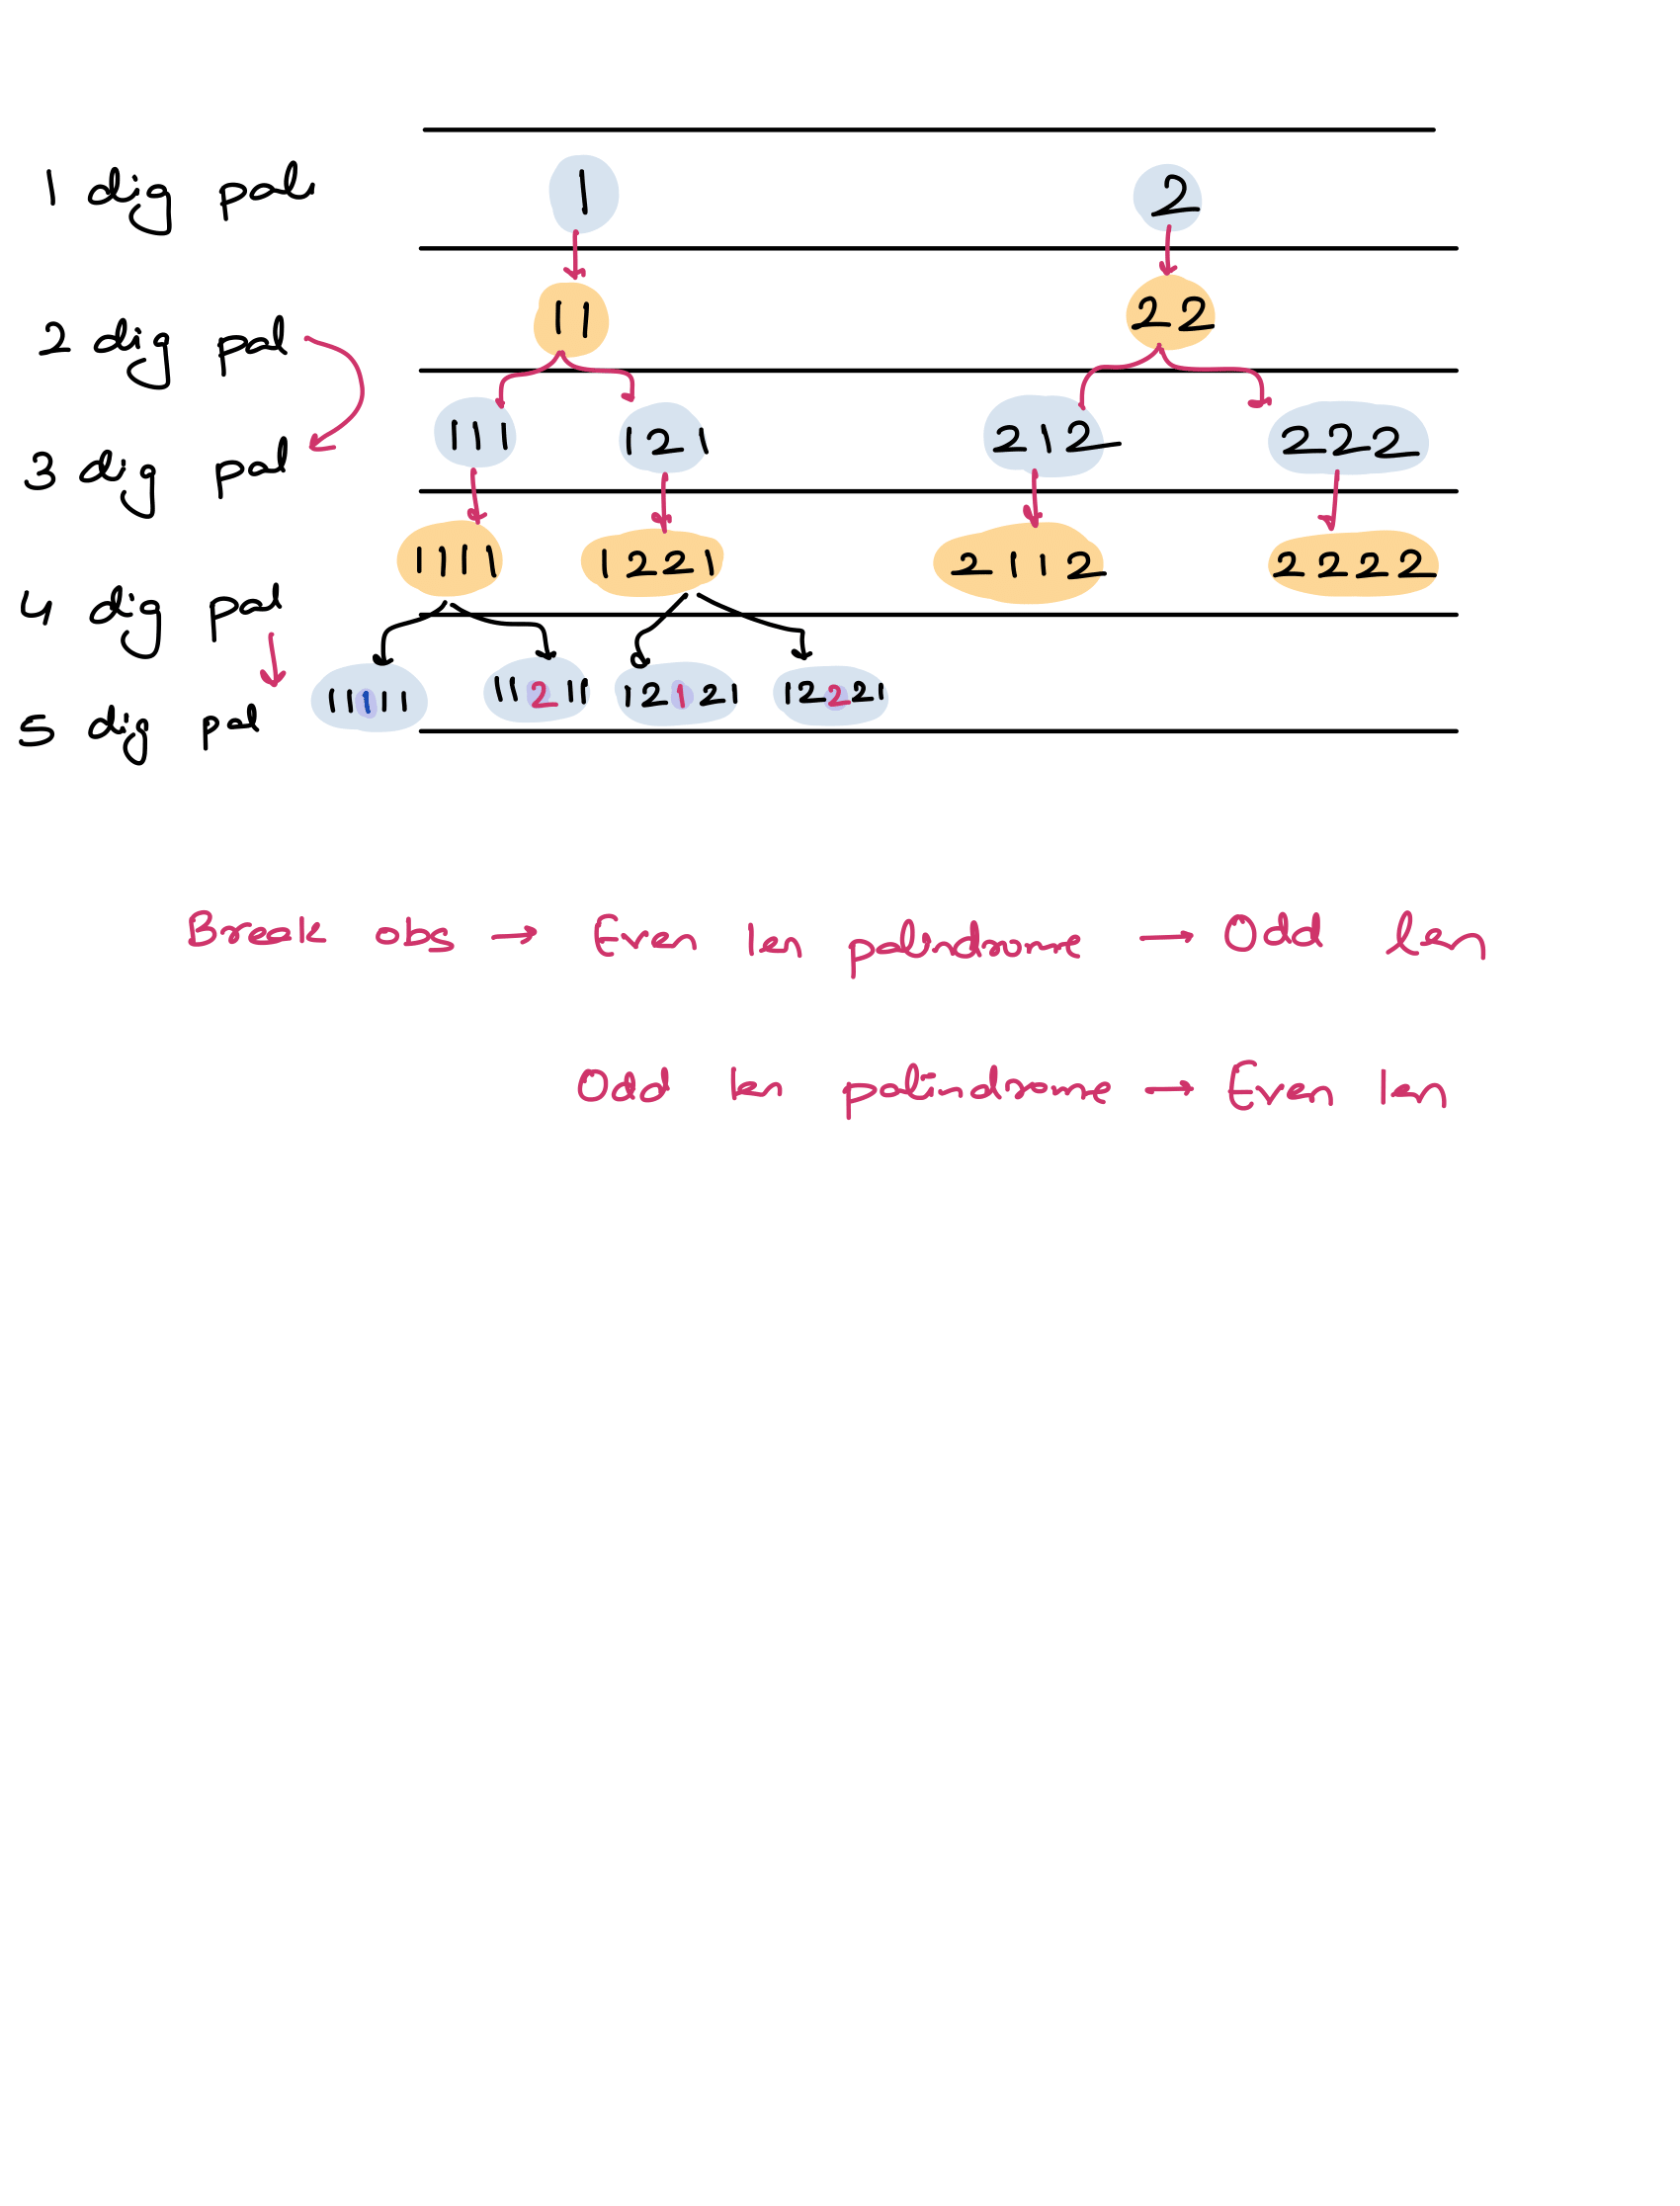 1 dig pal 1 2
2 dig pal 11 22
3 dig pal 111 121 212 222
4 dig pal 1111 1221 2112 2222
5 dig pal 11111 11211 12121 12221
Break obs → Even len palindrome → Odd len
Odd len palindrome → Even len